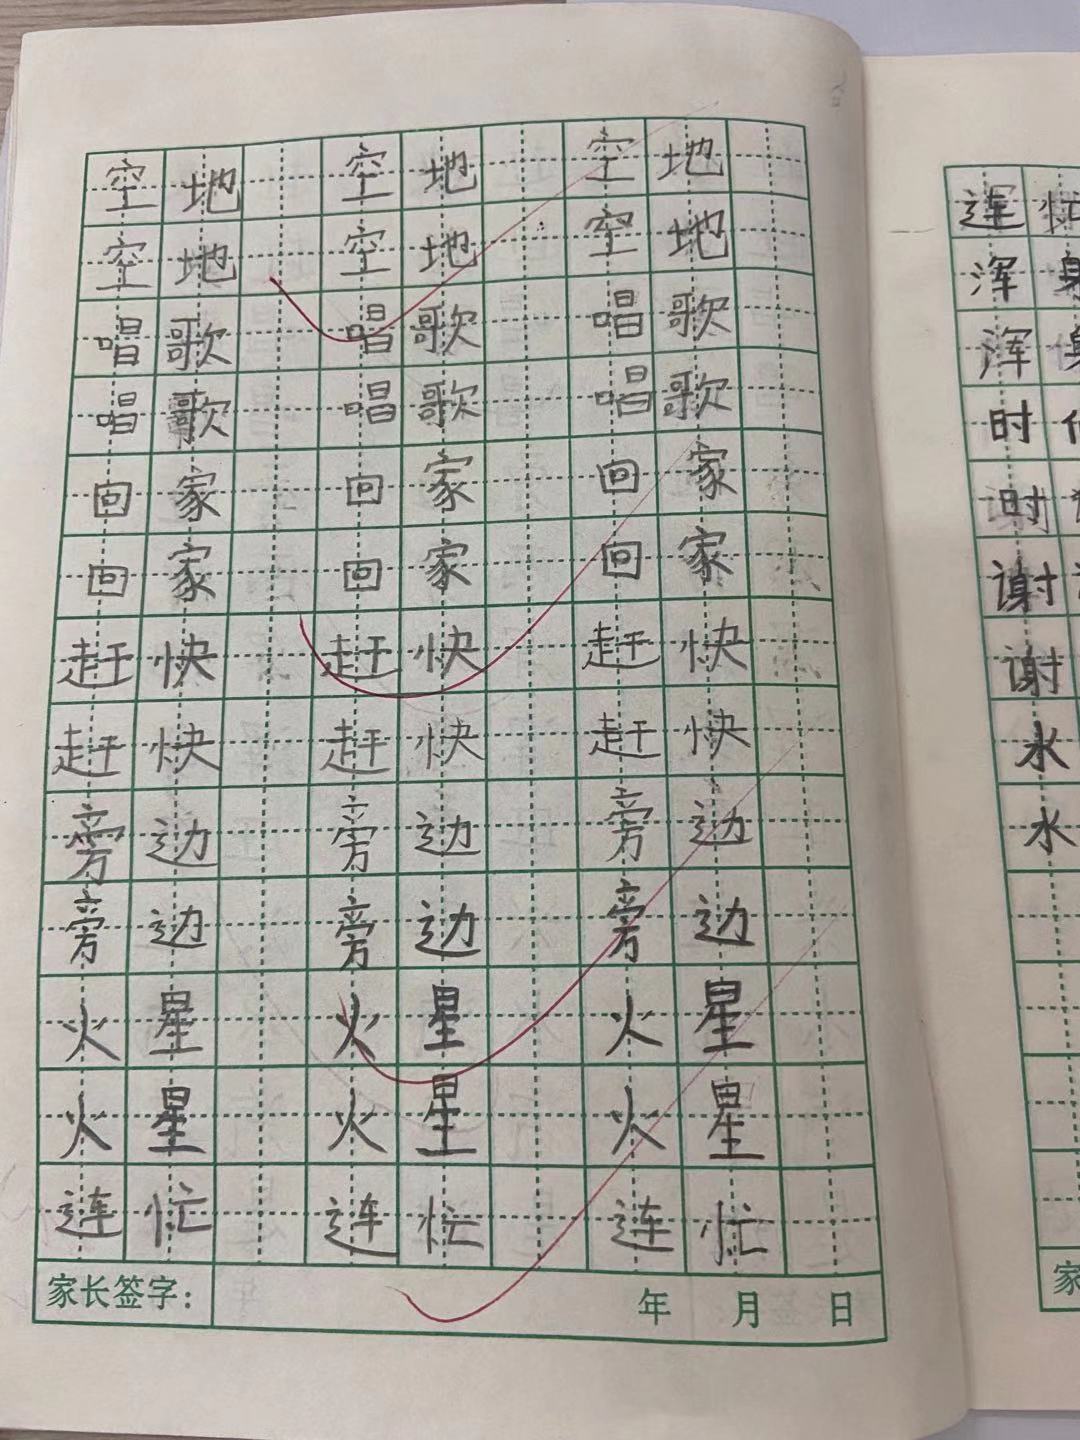 空地 空地 空地
空地 空地 空地
唱歌 唱歌 唱歌
唱歌 唱歌 唱歌
回家 回家 回家
回家 回家 回家
赶快 赶快 赶快
赶快 赶快 赶快
旁边 旁边 旁边
旁边 旁边 旁边
火星 火星 火星
火星 火星 火星
连忙 连忙 连忙
家长签字： 年 月 日
连忙
浑身
浑身
时
时
谢
谢
水
水
家